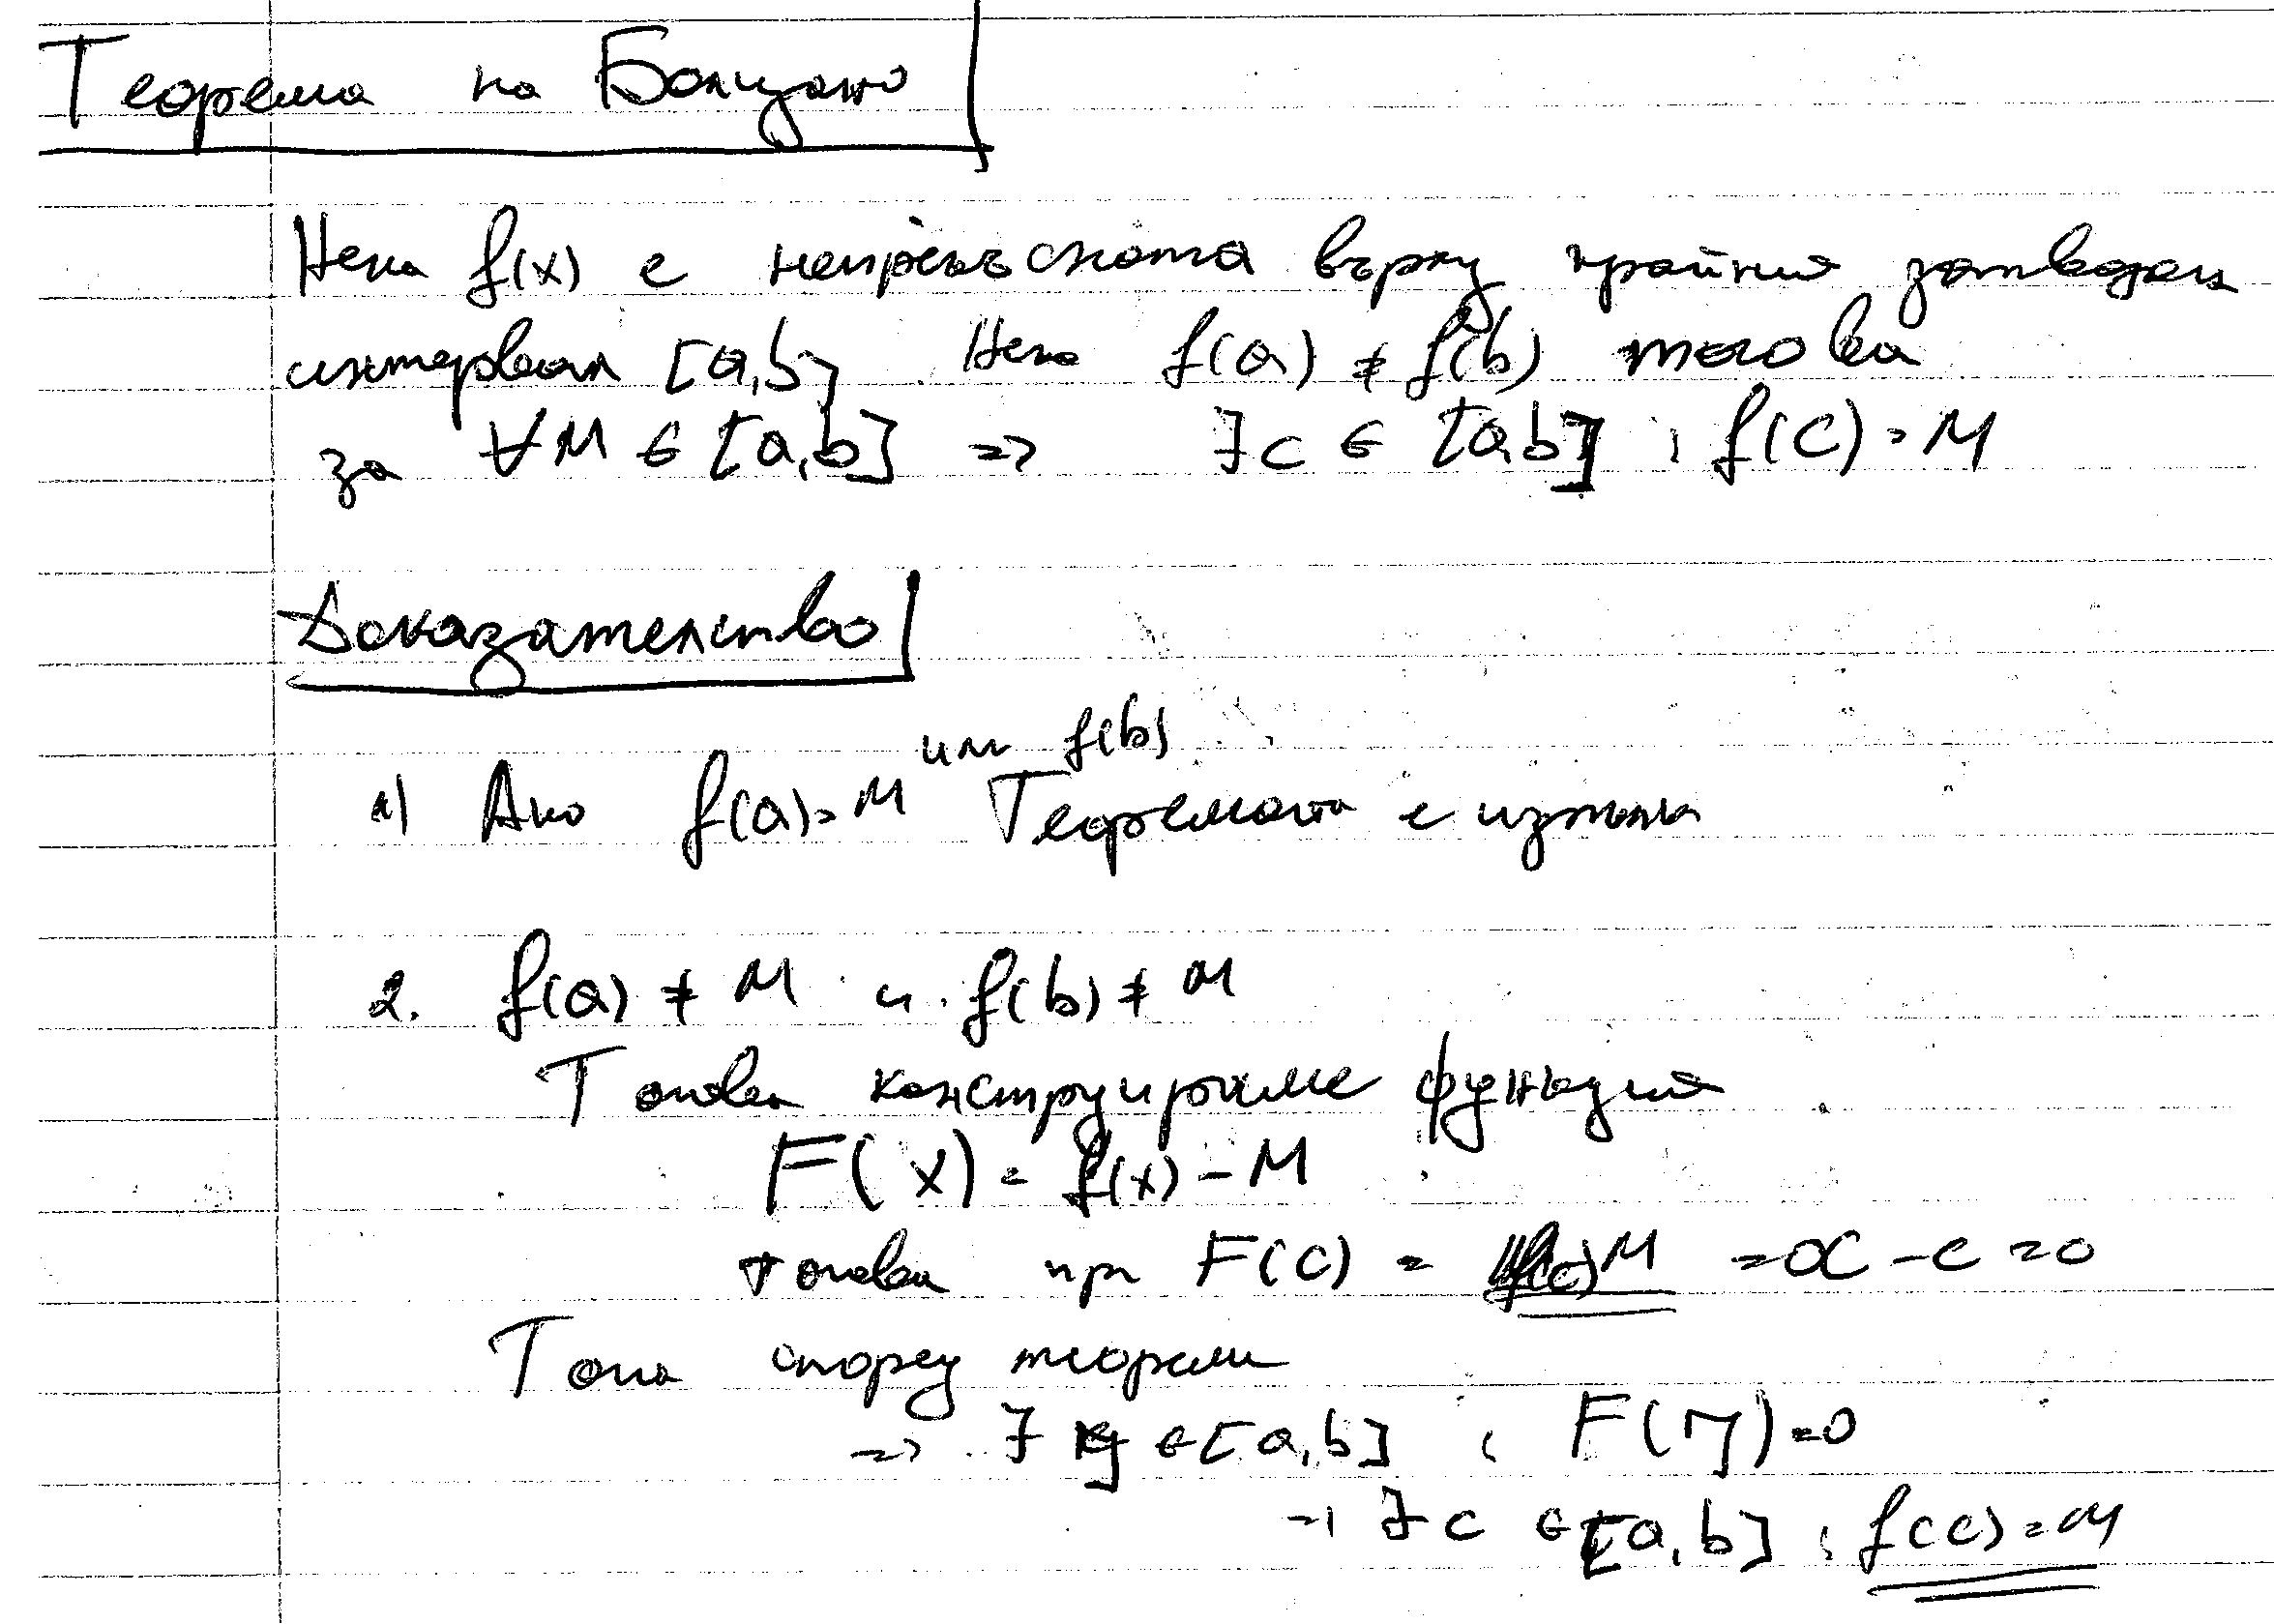 Теорема на Болцано
Нека f(x) е непрекъсната върху крайния затворен
интервал [a,b] . Нека f(a) ≠ f(b) тогава
за ∀M ∈ [a,b] => ∃c ∈ [a,b] : f(c) = M
Доказателство
или f(b)
1) Ако f(a) = M Теоремата е изпълн
2. f(a) ≠ M и f(b) ≠ M
Тогава конструираме функция
F(x) = f(x) - M
тогава при F(c) = M = - c = 0
Тога според теорема
=> ∃ ∈ [a,b] : F(η) = 0
=> ∃ c ∈ [a,b] : f(c) = M